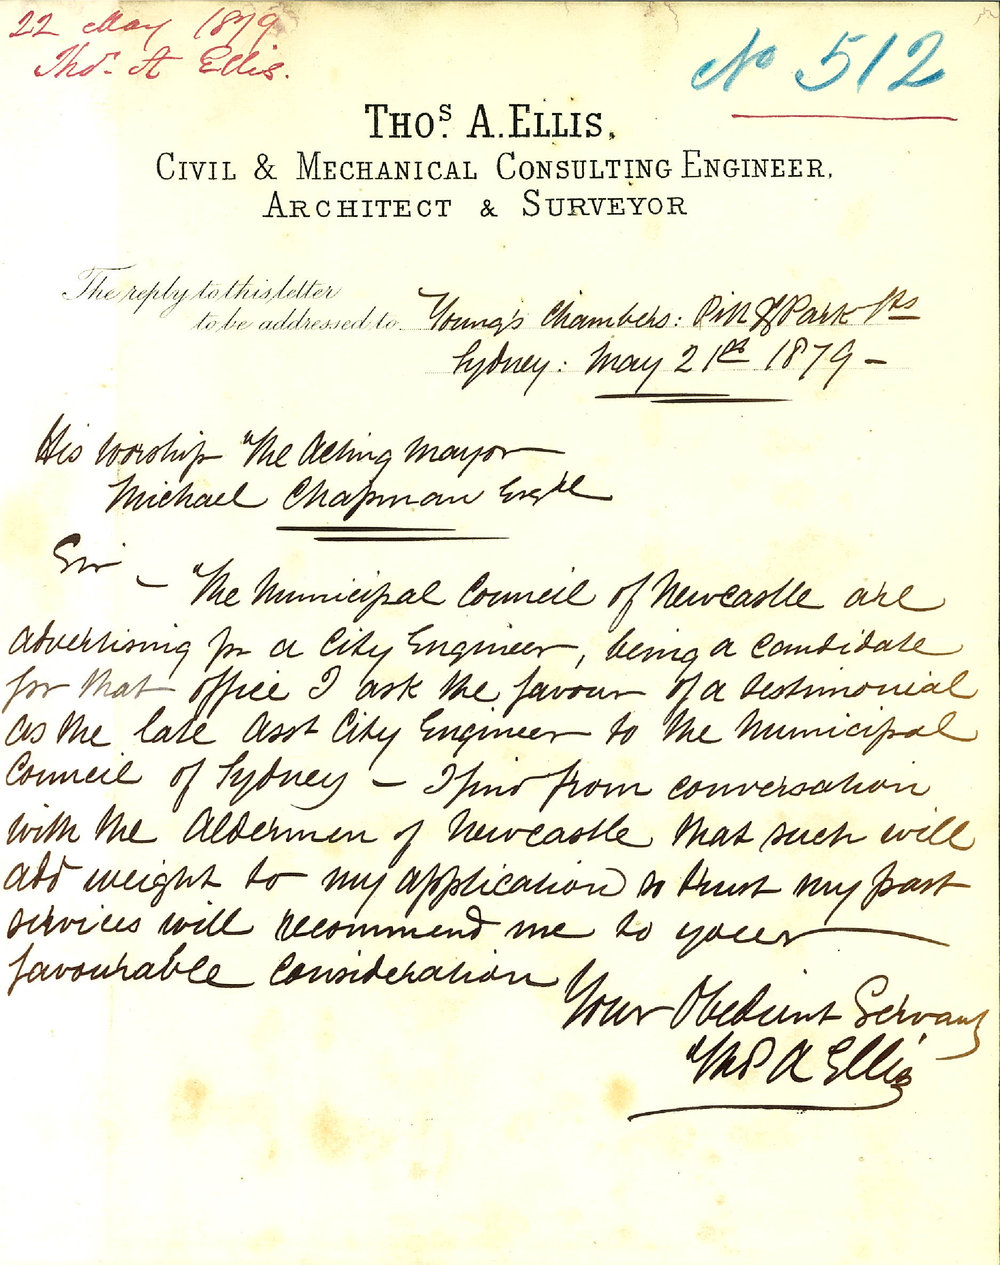 22 May 1879
Thos. A Ellis.
No 512
THOS. A. ELLIS,
CIVIL & MECHANICAL CONSULTING ENGINEER,
ARCHITECT & SURVEYOR
The reply to this letter
to be addressed to Young's Chambers: Pitt & Park Sts
Sydney: May 21st 1879 -
His Worship The Acting Mayor
Michael Chapman Esq
Sir - The Municipal Council of Newcastle are
advertising for a City Engineer, being a candidate
for that office I ask the favour of a testimonial
as the late Asst City Engineer to the Municipal
Council of Sydney - I find from conversation
with the Aldermen of Newcastle that such will
add weight to my application & trust my past
services will recommend me to your
favourable consideration
Your Obedient Servant
Thos A Ellis